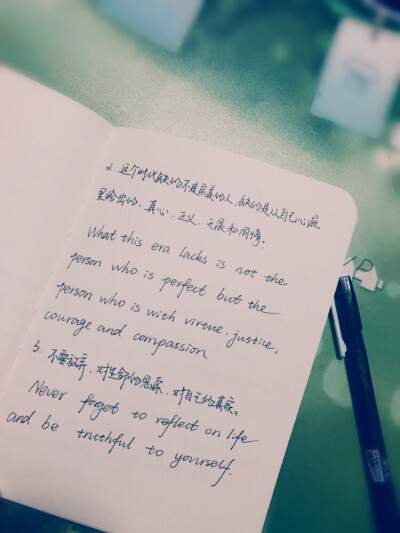 2. 这个时代缺的不是完美的人，缺的是从自己心底
里给出的，真心、正义、无畏和同情；
What this era lacks is not the
person who is perfect but the
person who is with virtue, justice,
courage and compassion
3. 不要放弃，对生命的思索，对自己的真实。
Never forget to reflect on life
and be truthful to yourself.